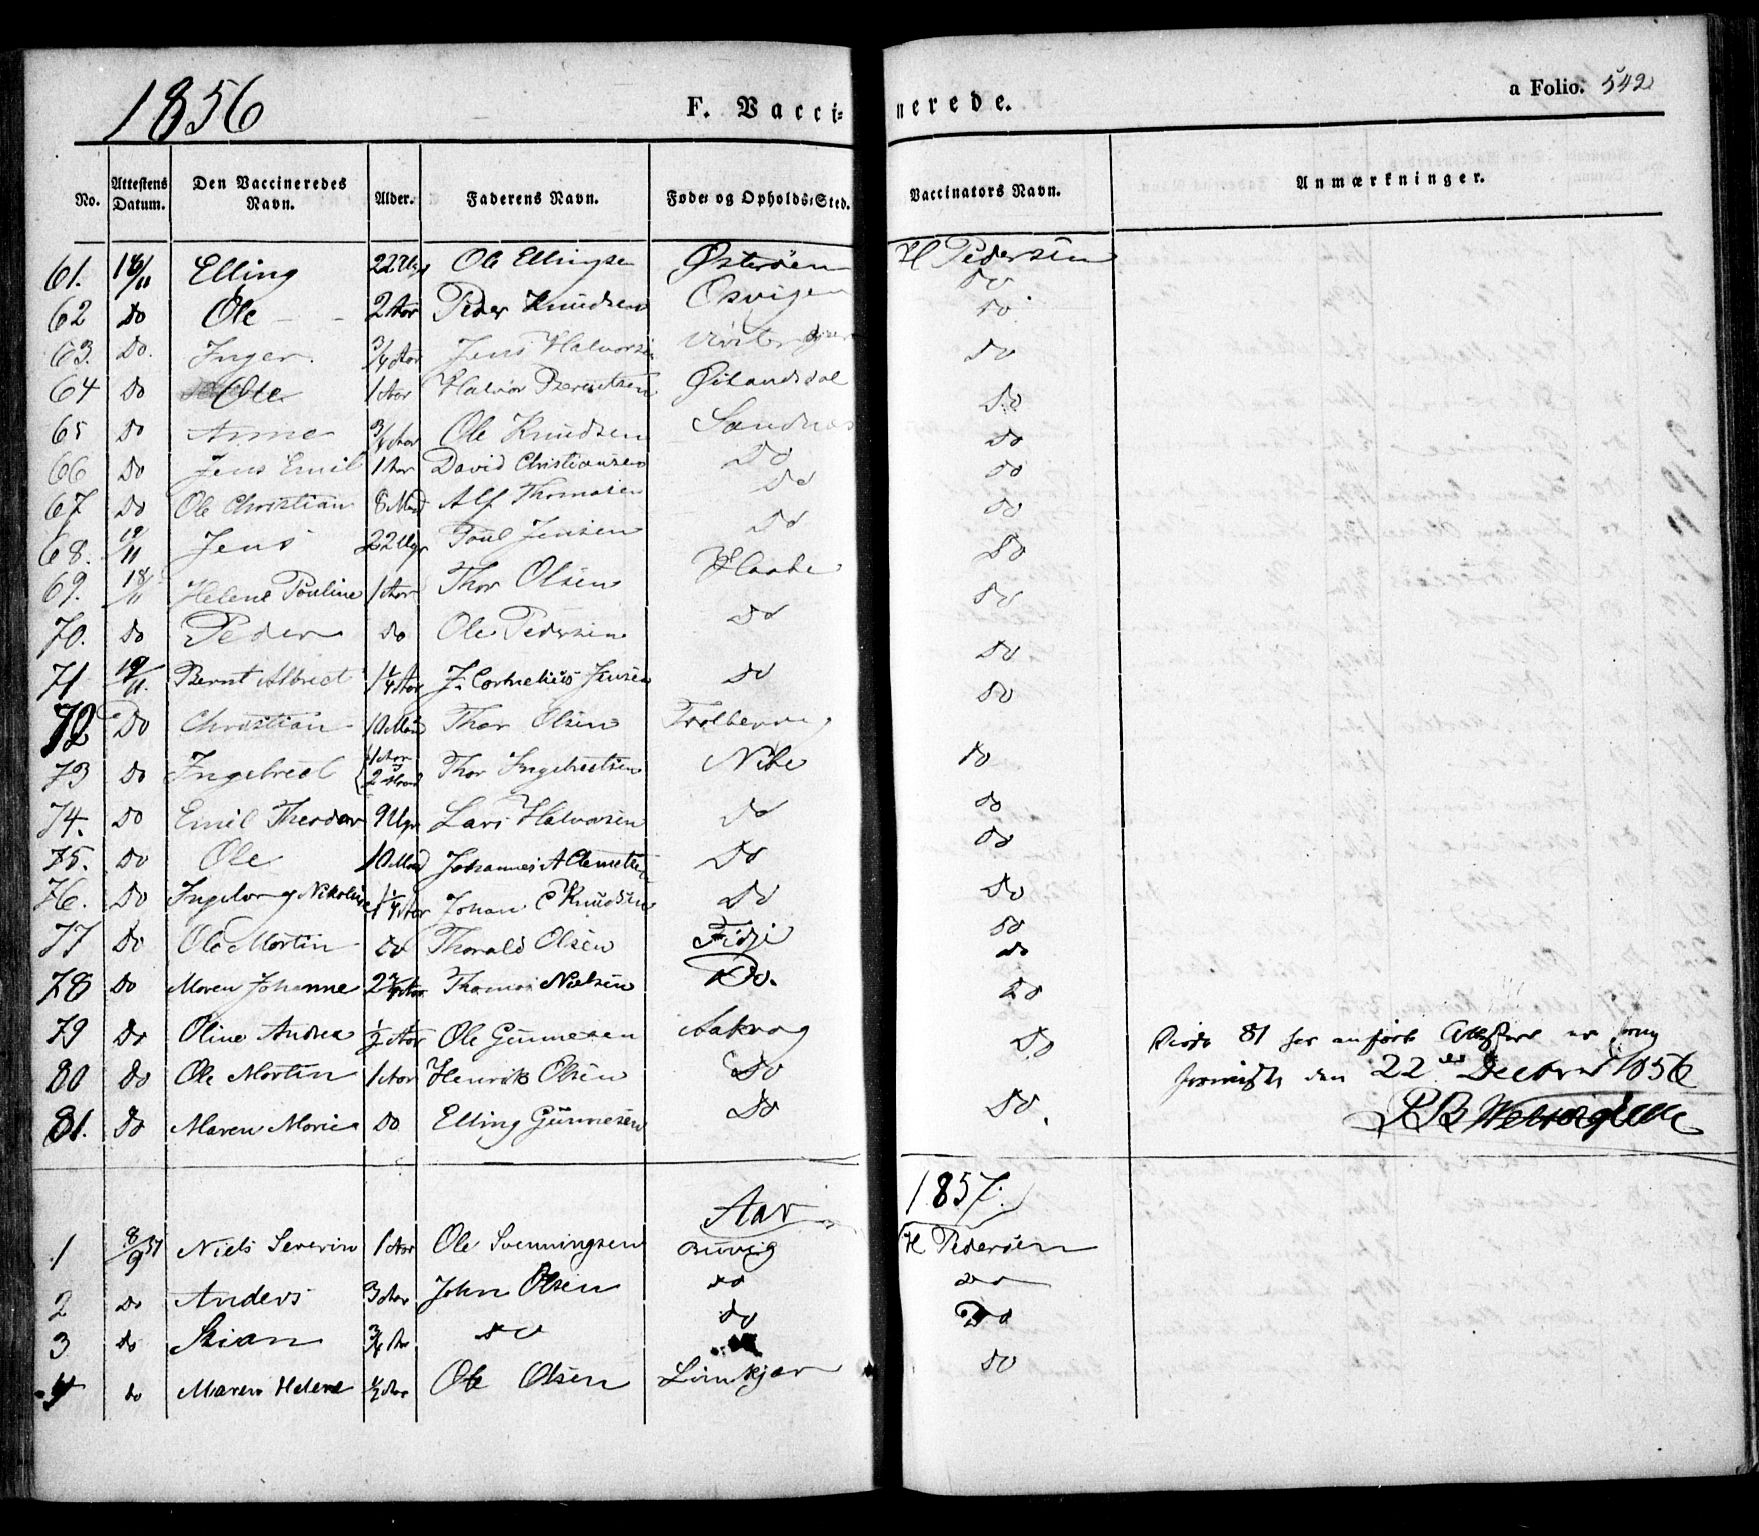 1856
F. Vaccinerede.
a Folio. 542
No. Attestens Datum. Den Vaccineredes Navn. Alder. Faderens Navn. Føde- og Opholds-Sted. Vaccinators Navn. Anmærkninger.
61. 18/11 Elling 22 Ugr Ole Ellingsen Østerøen H Pedersen
62 Do Ole 2 Aar Peder Knudsen Osvigen Do
63. Do. Inger 3/4 Aar Jens Halvorsen Do
64 Do Ole 1 Aar Halvor Berentsen Øilandsdal Do
65 Do Anne 3/4 Aar Ole Knudsen Sandnæs Do
66 Do Jens Emil 1 Aar David Christiansen Do Do
67 Do Ole Christian 8 Mnd Alf Thomasen Do Do
68. 19/11 Jens 22 Ugr Poul Jensen Do Do
69. 18/11 Helene Pouline 1 Aar Thor Olsen Do
70. Do Peder Do Ole Pedersen Do Do
71 19/11. Bernt Albrect 1 1/4 Aar J. Cornelius Jensen Do Do
72 Do Christian 10 Mnd Thor Olsen
73 Do Ingebrect 1 Aar 2 Mnd Thor Ingebretsen Nibe Do
74. Do Emil Theodor 9 Ugr Lars Halvorsen Do Do
75. Do Ole 10 Mnd Johannes A Clemetsen Do Do
76. Do Ingeborg Nikoline 1 1/4 Aar Johan C Knudsen Do Do
77 Do Ole Mortin do Thorald Olsen Fidje Do
78 Do Maren Johanne 2 3/4 Aar Thomas Nielsen Do. Do
79 Do Oline Andrea 1/2 Aar Ole Gunnesen Aakvog Do
80 Do Ole Mortin 1 Aar Henrik Olsen Do Do
81. Do Maren Marie Do Elling Gunnesen Do Do.
81 her anførte Attester er
den 22de Decbr 1856
Aar 1857.
1 8/9 57 Niels Severin 1 Aar Ole Svenningsen Buvig H Pedersen
2 Do Anders 3 Aar John Olsen do do
3 do Stian 3/4 Ar do do Do
4 do Maren Helene 1/2 Aar Ole Olsen Limkjær Do